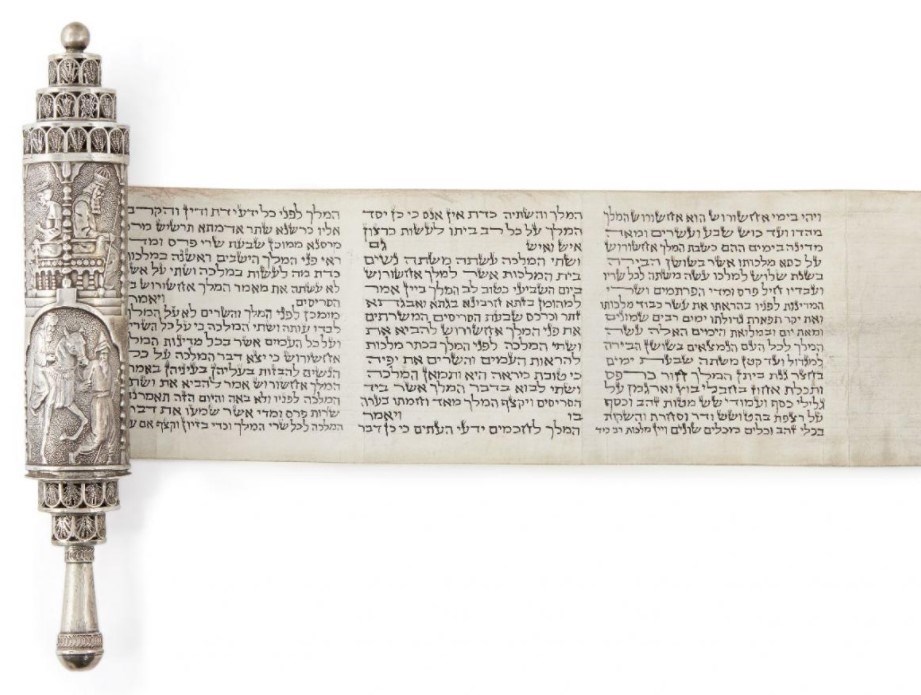 ויהי בימי אחשורוש הוא אחשורוש המלך
מהדו ועד כוש שבע ועשרים ומאה
מדינה בימים ההם כשבת המלך אחשורוש
על כסא מלכותו אשר בשושן הבירה
בשנת שלוש למלכו עשה משתה לכל שריו
ועבדיו חיל פרס ומדי הפרתמים ושרי
המדינות לפניו בהראתו את עשר כבוד מלכותו
ואת יקר תפארת גדולתו ימים רבים שמונים
ומאת יום ובמלואת הימים האלה עשה
המלך לכל העם הנמצאים בשושן הבירה
למגדול ועד קטן משתה שבעת ימים
בחצר גנת ביתן המלך חור כרפס
ותכלת אחוז בחבלי בוץ וארגמן על
גלילי כסף ועמודי שש מטות זהב וכסף
על רצפת בהט ושש ודר וסחרת והשקות
בכלי זהב וכלים מכלים שונים ויין מלכות רב כיד
המלך והשתיה כדת אין אנס כי כן יסד
המלך על כל רב ביתו לעשות כרצון
איש ואיש גם
ושתי המלכה עשתה משתה נשים
בית המלכות אשר למלך אחשורוש
ביום השביעי כטוב לב המלך ביין אמר
למהומן בזתא חרבונא בגתא ואבגתא
זתר וכרכס שבעת הסריסים המשרתים
את פני המלך אחשורוש להביא את
ושתי המלכה לפני המלך בכתר מלכות
להראות העמים והשרים את יפיה
כי טובת מראה היא ותמאן המלכה
ושתי לבוא בדבר המלך אשר ביד
הסריסים ויקצף המלך מאד וחמתו בערה
בו ויאמר
המלך לחכמים ידעי העתים כי כן דבר
המלך לפני כל ידעי דת ודין והקרב
אליו כרשנא שתר אדמתא תרשיש
מרסנא ממוכן שבעת שרי פרס
ראי פני המלך הישבים ראשנה
כדת מה לעשות במלכה ושתי על
לא עשתה את מאמר המלך אחשורוש
הסריסים ויאמר
מומכן לפני המלך והשרים לא על
לבדו עותה ושתי המלכה כי על כל
ועל כל העמים אשר בכל מדינות
אחשורוש כי יצא דבר המלכה על
הנשים להבזות בעליהן בעיניהן
המלך אחשורוש אמר להביא את
המלכה לפניו ולא באה והיום הזה
שרות פרס ומדי אשר שמעו את דבר
המלכה לכל שרי המלך וכדי בזיון וקצף אם